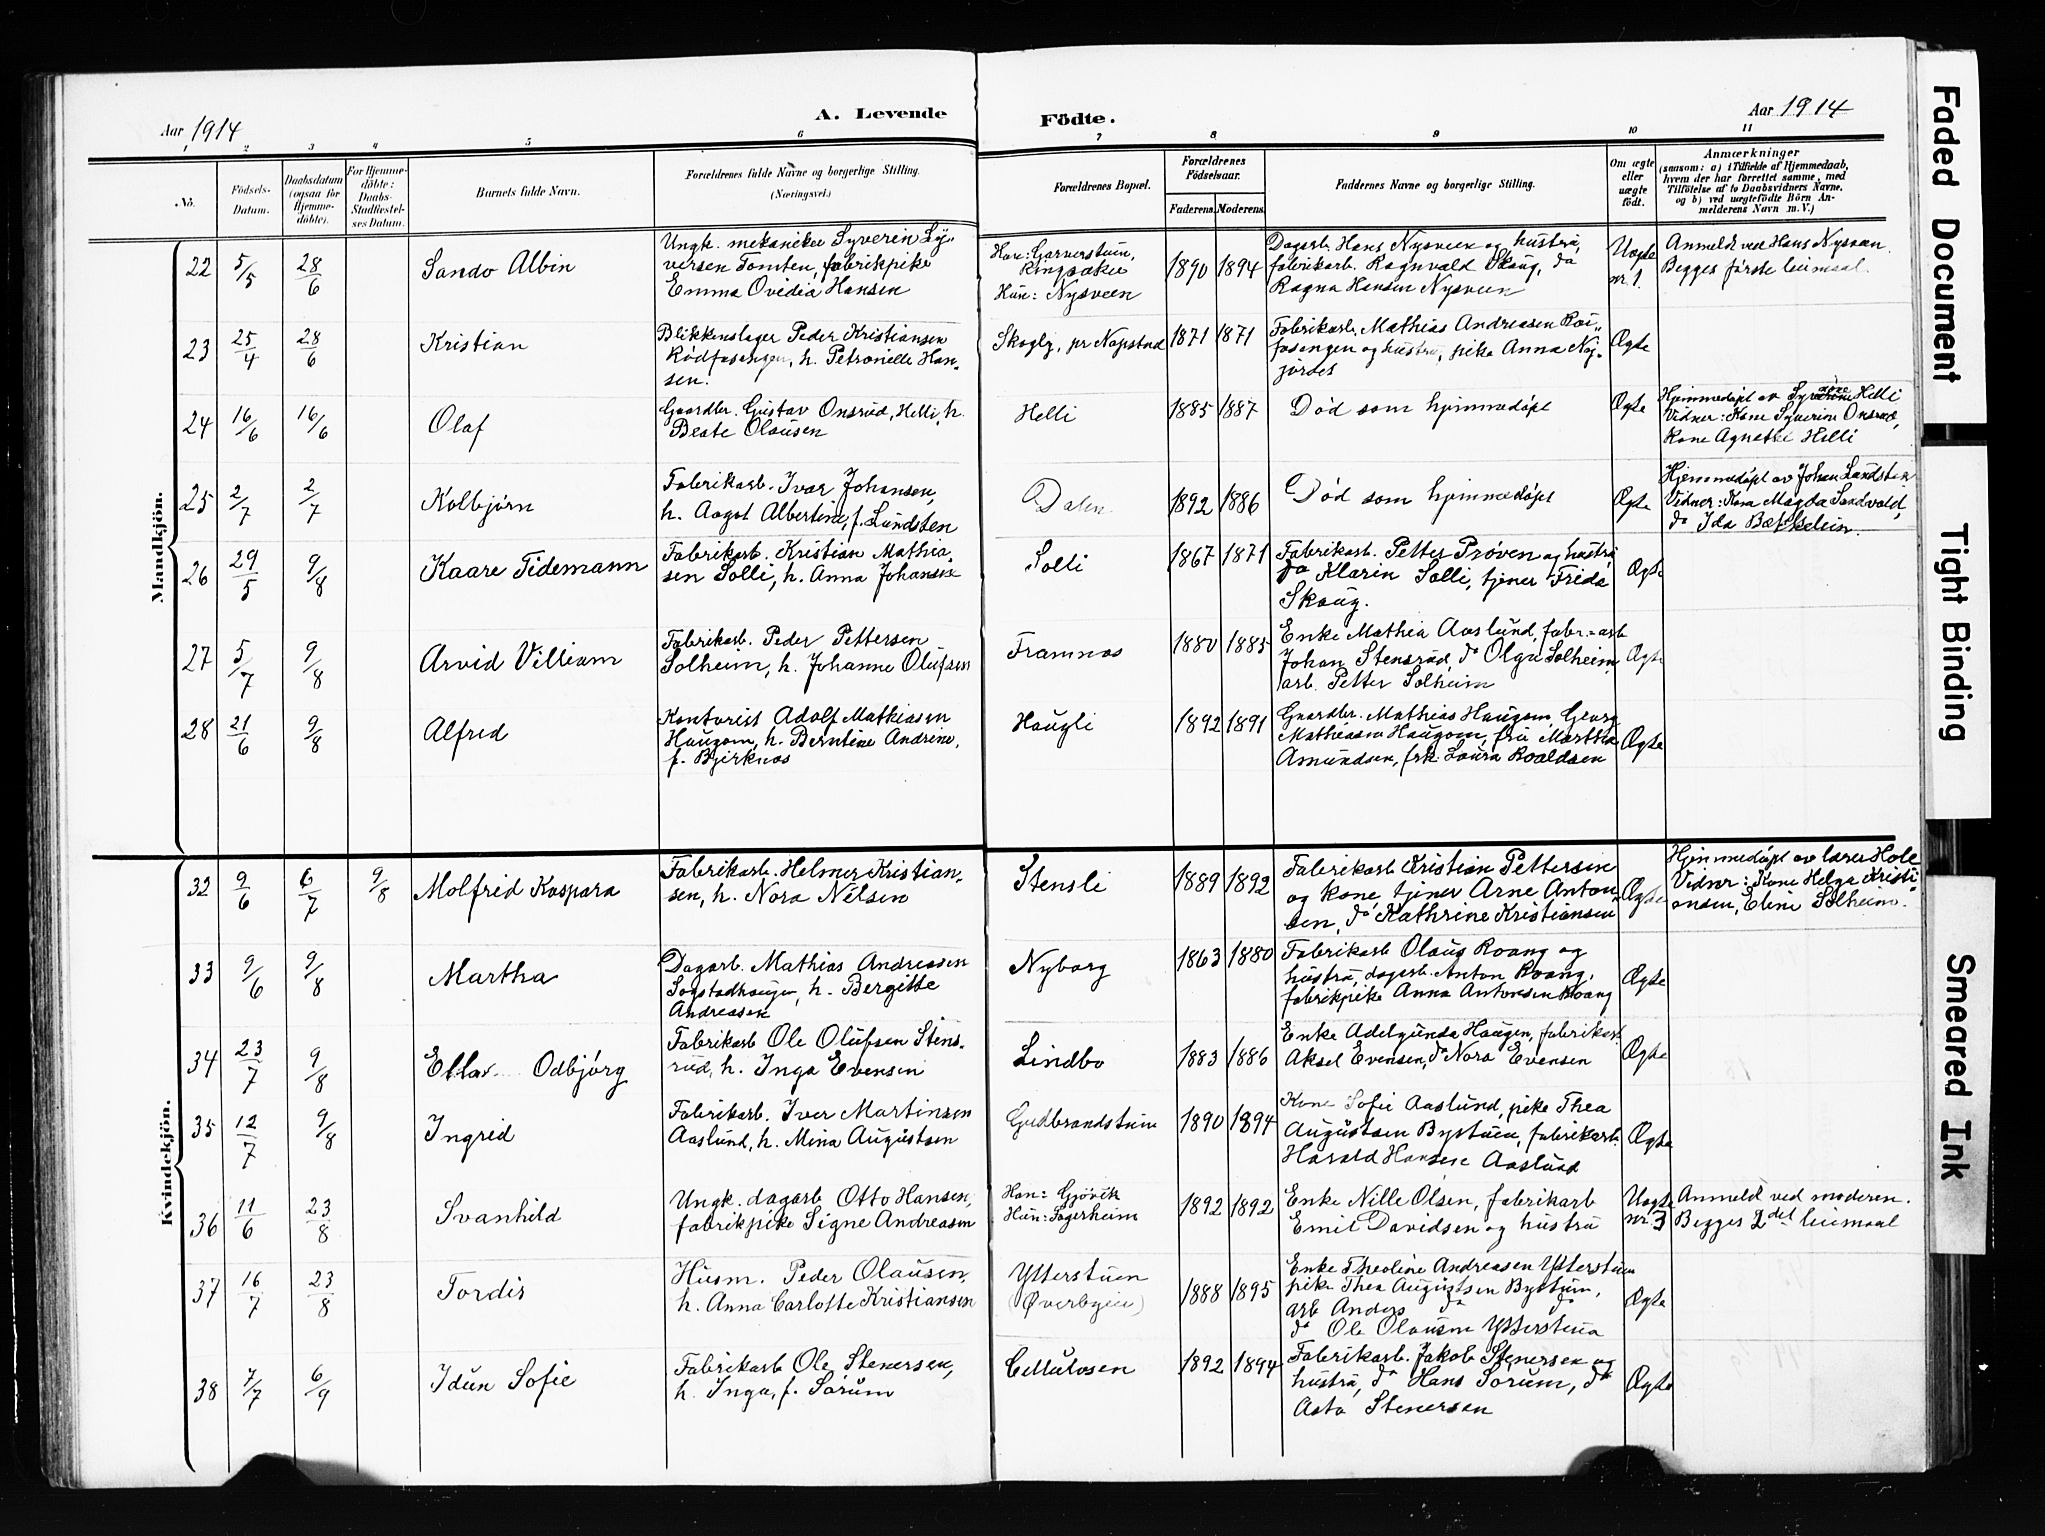 Aar 1914
A. Levende
Födte.
Aar 1914
1 2 3 4 5 6 7 8 9 10 11
No.
Födsels-
Datum.
Daabsdatum
(ogsaa for
Hjemme-
döbte).
For Hjemme-
döbte:
Daabs-
Stadfæstel-
ses Datum.
Barnets fulde Navn.
Forældrenes fulde Navne og borgerlige Stilling.
(Næringsvei.)
Forældrenes Bopæl.
Forældrenes
Födselsaar.
Faderens.
Moderens.
Faddernes Navne og borgerlige Stilling.
Om ægte
eller
uægte
födt.
Anmærkninger
(saasom: a) i Tilfælde af Hjemmedaab,
hvem der har forrettet samme, med
Tilföielse af to Daabsvidners Navne,
og b) ved uægtefödte Börn An-
melderens Navn m. V.)
Mandkjön.
22 5/5 28/6 Sando Albin
Ungk. mekaniker Syverin Sy-
versen Tomten, fabrikpike
Emma Ovidia Hansen
Han: Garverstuen,
Ringsaker
Hun: Nysveen
1890 1894
Dagarb. Hans Nysveen og hustru,
fabrikarb. Ragnvald Skaug, do
Ragna Hansen Nysveen
Uegte
nr. 1.
Anmeldt ved Hans Nysveen.
Begges første leiermaal.
23 25/4 28/6 Kristian
Blikkenslager Peder Kristiansen
Rødfosengen, h. Petronelle Han-
sen.
Skogly, pr Napstad
1871 1871
Fabrikarb. Mathias Andreasen Roi-
fosengen og hustru, pike Anna Ny-
jordet
Ægte
24 16/6 16/6 Olaf
Gaardbr. Gustav Onsrud, Helli, h.
Beate Olausen
Helli
1885 1887
Død som hjemmedøpt
Ægte
Hjemmedøpt av Syverine Helli
Vidner: Kone Syverine Onsrud,
kone Agnethe Helli
25 2/7 2/7 Kolbjørn
Fabrikarb. Ivar Johansen,
h. Aagot Albertine, f. Lundsten
Dalen
1892 1886
Død som hjemmedøpt
Ægte
Hjemmedøpt av Johan Lundsten
Vidner: Kona Magda Sandvold,
do Ida
26 29/5 9/8 Kaare Tidemann
Fabrikarb. Kristian Mathia-
sen Solli, h. Anna Johansen
Solli
1867 1871
Fabrikarb. Petter Prøven og hustru
do Klarin Solli, tjener Frida
Skaug.
Ægte
27 5/7 9/8 Arvid Villiam
Fabrikarb. Peder Pettersen
Solheim, h. Johanne Olufsen
Framnes
1880 1885
Enke Mathea Aaslund, fabr.=arb
Johan Stensrud, do Olga Solheim,
arb. Petter Solheim
Ægte
28 21/6 9/8 Alfred
Kontorist Adolf Mathiasen
Haugom, h. Berntine Andrine,
f. Bjerknes
Haugli
1892 1891
Gaardbr. Mathias Haugom, Georg
Mathiasen Haugom, fru Martha
Amundsen, frk. Laura Roaldsen
Ægte
Kvindekjön.
32 9/6 6/7 9/8 Molfrid Kaspara
Fabrikarb. Helmer Kristian-
sen, h. Nora Nilsen
Stensli
1889 1892
Fabrikarb Kristian Pettersen
og kone, tjener Arne Anton-
sen, do Kathrine Kristiansen
Ægte
Hjemmedøpt av lærer Hole
Vidner: Kone Helga Kristi-
ansen, Eline Solheim.
33 9/6 9/8 Martha
Dagarb. Mathias Andreasen
Sogstadhaugen, h. Bergitte
Andreasen
Nyborg
1863 1880
Fabrikarb Olaus Roang og
hustru, dagarb. Anton Roang,
fabrikpike Anna Antonsen Roang
Ægte
34 23/7 9/8 Ella Odbjørg
Fabrikarb Ole Olufsen Stens-
rud, h. Inga Evensen
Lindbo
1883 1886
Enke Adelgunda Haugen, fabrikarb.
Aksel Evensen, do Nora Evensen
Ægte
35 12/7 9/8 Ingrid
Fabrikarb. Iver Martinsen
Aaslund, h. Mina Augustsen
Gudbrandstuen
1890 1894
Kone Sofie Aaslund, pike Thea
Augustsen Bystuen, fabrikarb.
Harald Hansen Aaslund
Ægte
36 11/6 23/8 Svanhild
Ungk. dagarb Otto Hansen,
fabrikpike Signe Andreasen
Han: Gjøvik
Hun: Sagerheim
1892 1892
Enke Nille Olsen, fabrikarb
Emil Davidsen og hustru
Uegte
nr. 3
Anmeldt ved moderen.
Begges 2det leiermaal
37 16/7 23/8 Tordis
Husm. Peder Olausen,
h. Anna Carlotte Kristiansen
Ytterstuen
(Øverbyeie)
1888 1895
Enke Theoline Andreasen Ytterstuen
pike Thea Augustsen Bystuen,
arb Anders do do
do Ole Olausen Ytterstua
Ægte
38 7/7 6/9 Idun Sofie
Fabrikarb Ole Stenersen,
h. Inga, f. Sørum
Cellulosen
1892 1894
Fabrikarb. Jakob Stenersen og
hustru, do Hans Sorum, do
Asta Stenersen
Ægte
Faded Document
Tight Binding
Smeared Ink